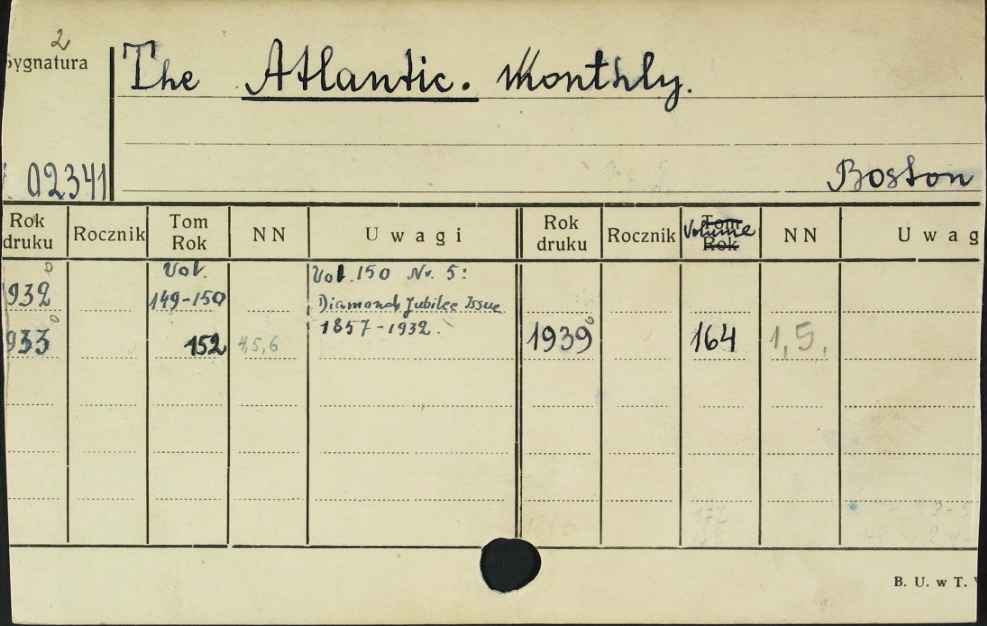 2
Sygnatura
The Atlantic. Monthly.
02341
Boston
Rok druku Rocznik Tom Rok NN Uwagi Rok druku Rocznik Tom Rok Volume NN Uwag
932 Vol. 149-150 Vol. 150 Nr. 5:
Diamond Jubilee Issue
1857-1932.
933 152 4,5,6 1939 164 1, 5,
B. U. w T.